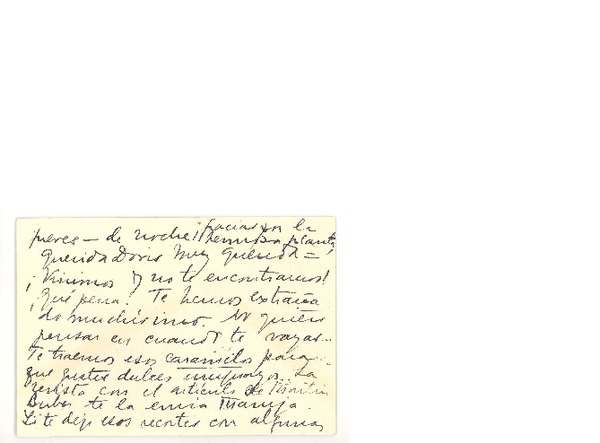 jueves — de noche ¡¡Gracias por la
hermosa planta
querida Doris muy querida =
¡Vinimos y no te encontramos!
¡Qué pena! Te hemos extraña
do muchísimo. No quiero
pensar en cuando te vayas..
Te traemos esos caramelos para
que gustes dulces uruguayos. La
revista con el artículo de Martin
Buber te la envía Maruja.
Yo te dejo esos recortes con algunas